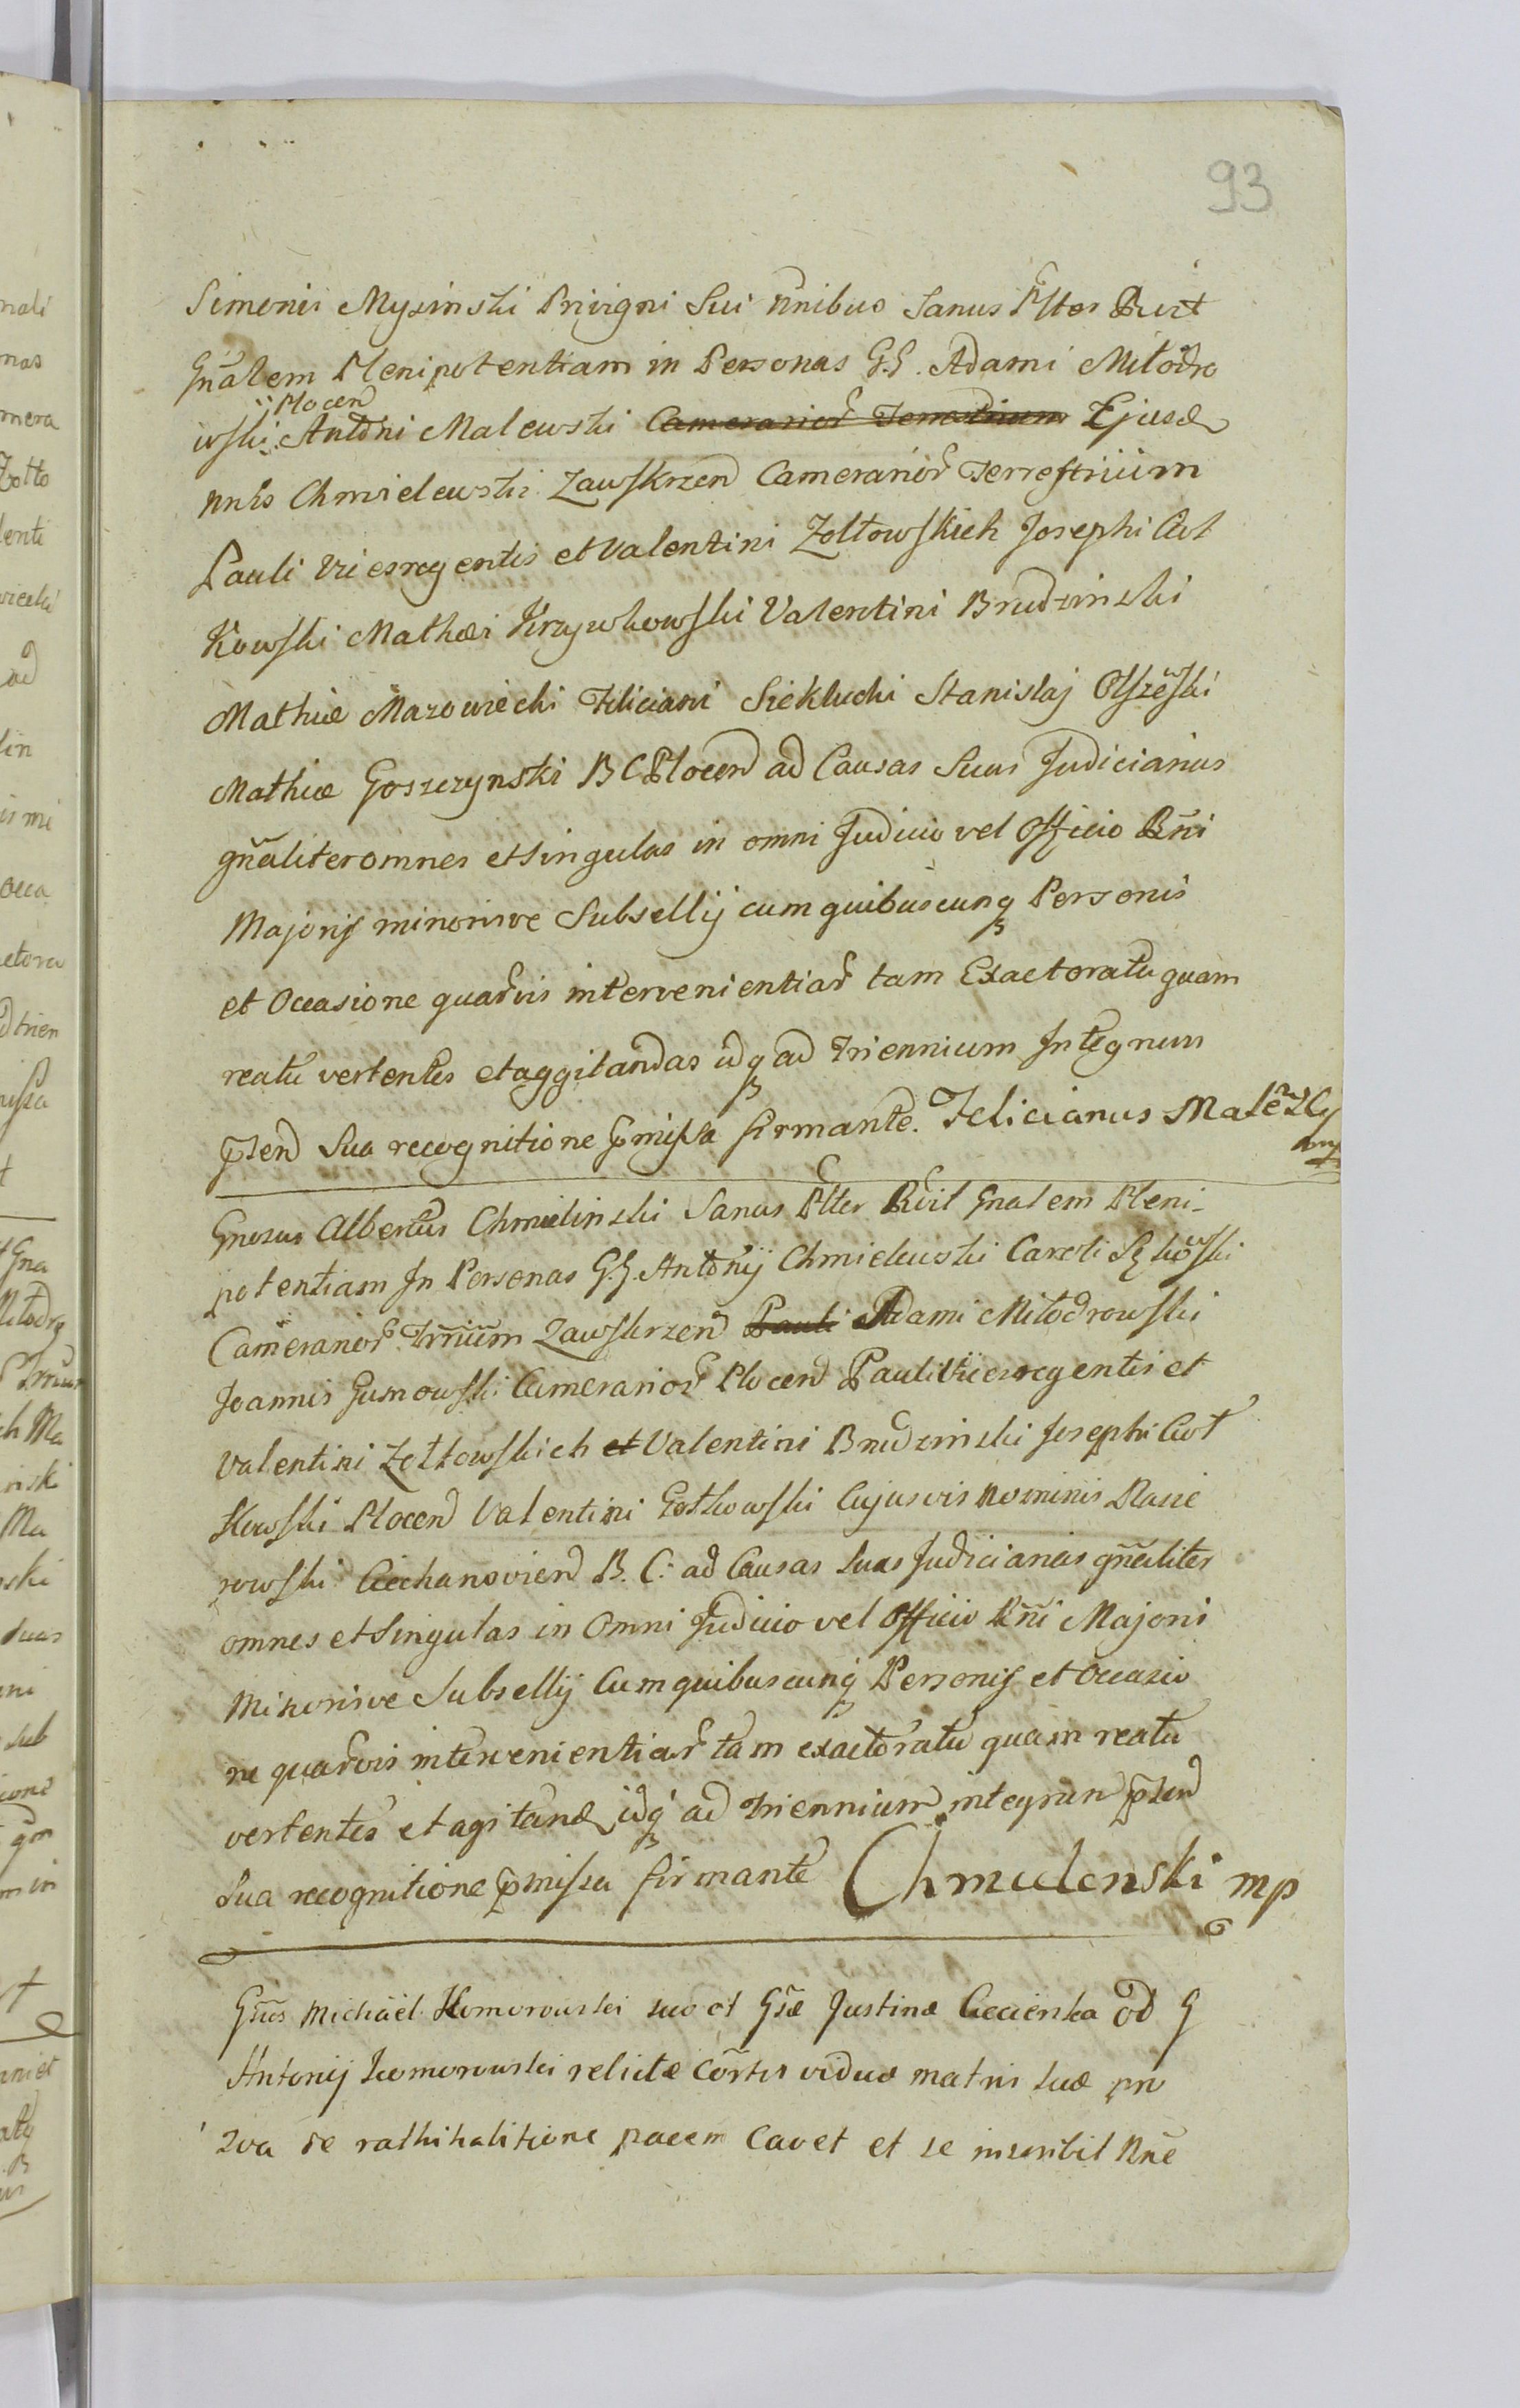 93
Simonis Myszinski Privigni Sui nnibus Sanus Plter Rcit
Gnalem Plenipotentiam in Personas G.G. Adami Miłodro
wski Płocen Antoni Malewski Camerarior Terrestrium Ejusd
nnis Chmielewski Zawskrzen Camerarior Terrestrium
Pauli Vicesregentis et Valentini Zołtowskich Josephi Cut
Kowski Mathæi Krzywkowski Valentini Brudzinski
Mathiæ Mazowiecki Feliciani Siekłucki Stanislaj Olszewski
Mathiæ Goszczynski B C Płocen ad Causas Suas Judiciarias
gñaliter omnes et singulas in omni Judicio vel Officio Rñi
Majoris minorisve Subsellij cum quibuscunq Personis
et Occasione quarvis intervenientiar tam Exactoratu quam
reatu vertentes et aggitandas idq ad Triennium Integrum
pñen Sua recognitione pmissa firmante. Felicianus Malewski
mp
Gnosus Albertus Chmielinski Sanus Plter Rcit Gnalem Pleni-
potentiam In Personas G.G. Antonij Chmielewski Caroli
Camerarior Trrium Zawskrzen Pauli Adami Miłodrowski
Joannis Gumowski Camerarior Płocen Pauli Vicesregentis et
Valentini Zołtowskich et Valentini Brudzinski Josephi Cut
Kowski Płocen Valentini Gotkowski Cujusvis Nominis Racie
rowski Ciechanovien B. C. ad Causas Suas Judiciarias gñaliter
omnes et Singulas in Omni Judicio vel Officio Rñi Majoris
Minorisve Subsellij Cum quibuscunq Personis et Occasio
ne quarvis intervenientiar tam exactoratu quam reatu
vertentes et agitand idq ad Triennium integrum pñen
Sua recognitione pmissa firmante Chmielenski mp
Gsus Michaël Komorowski suo et Gsæ Justinæ Ciecienka od G
Antonij Komorowski relictæ Cortis viduæ matris suæ pro
qua de rathihabitione pacem Cavet et se inscribit Rne